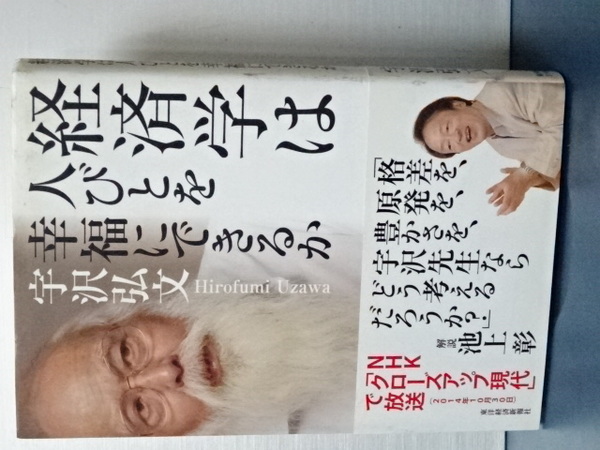 経済学は
人びとを
幸福にできるか
宇沢弘文
Hirofumi Uzawa
「格差を、
原発を、
豊かさを、
宇沢先生なら
どう考える
だろうか?」
解説 池上彰
NHK
「クローズアップ現代」
で放送
(2014年10月30日)
東洋経済新報社